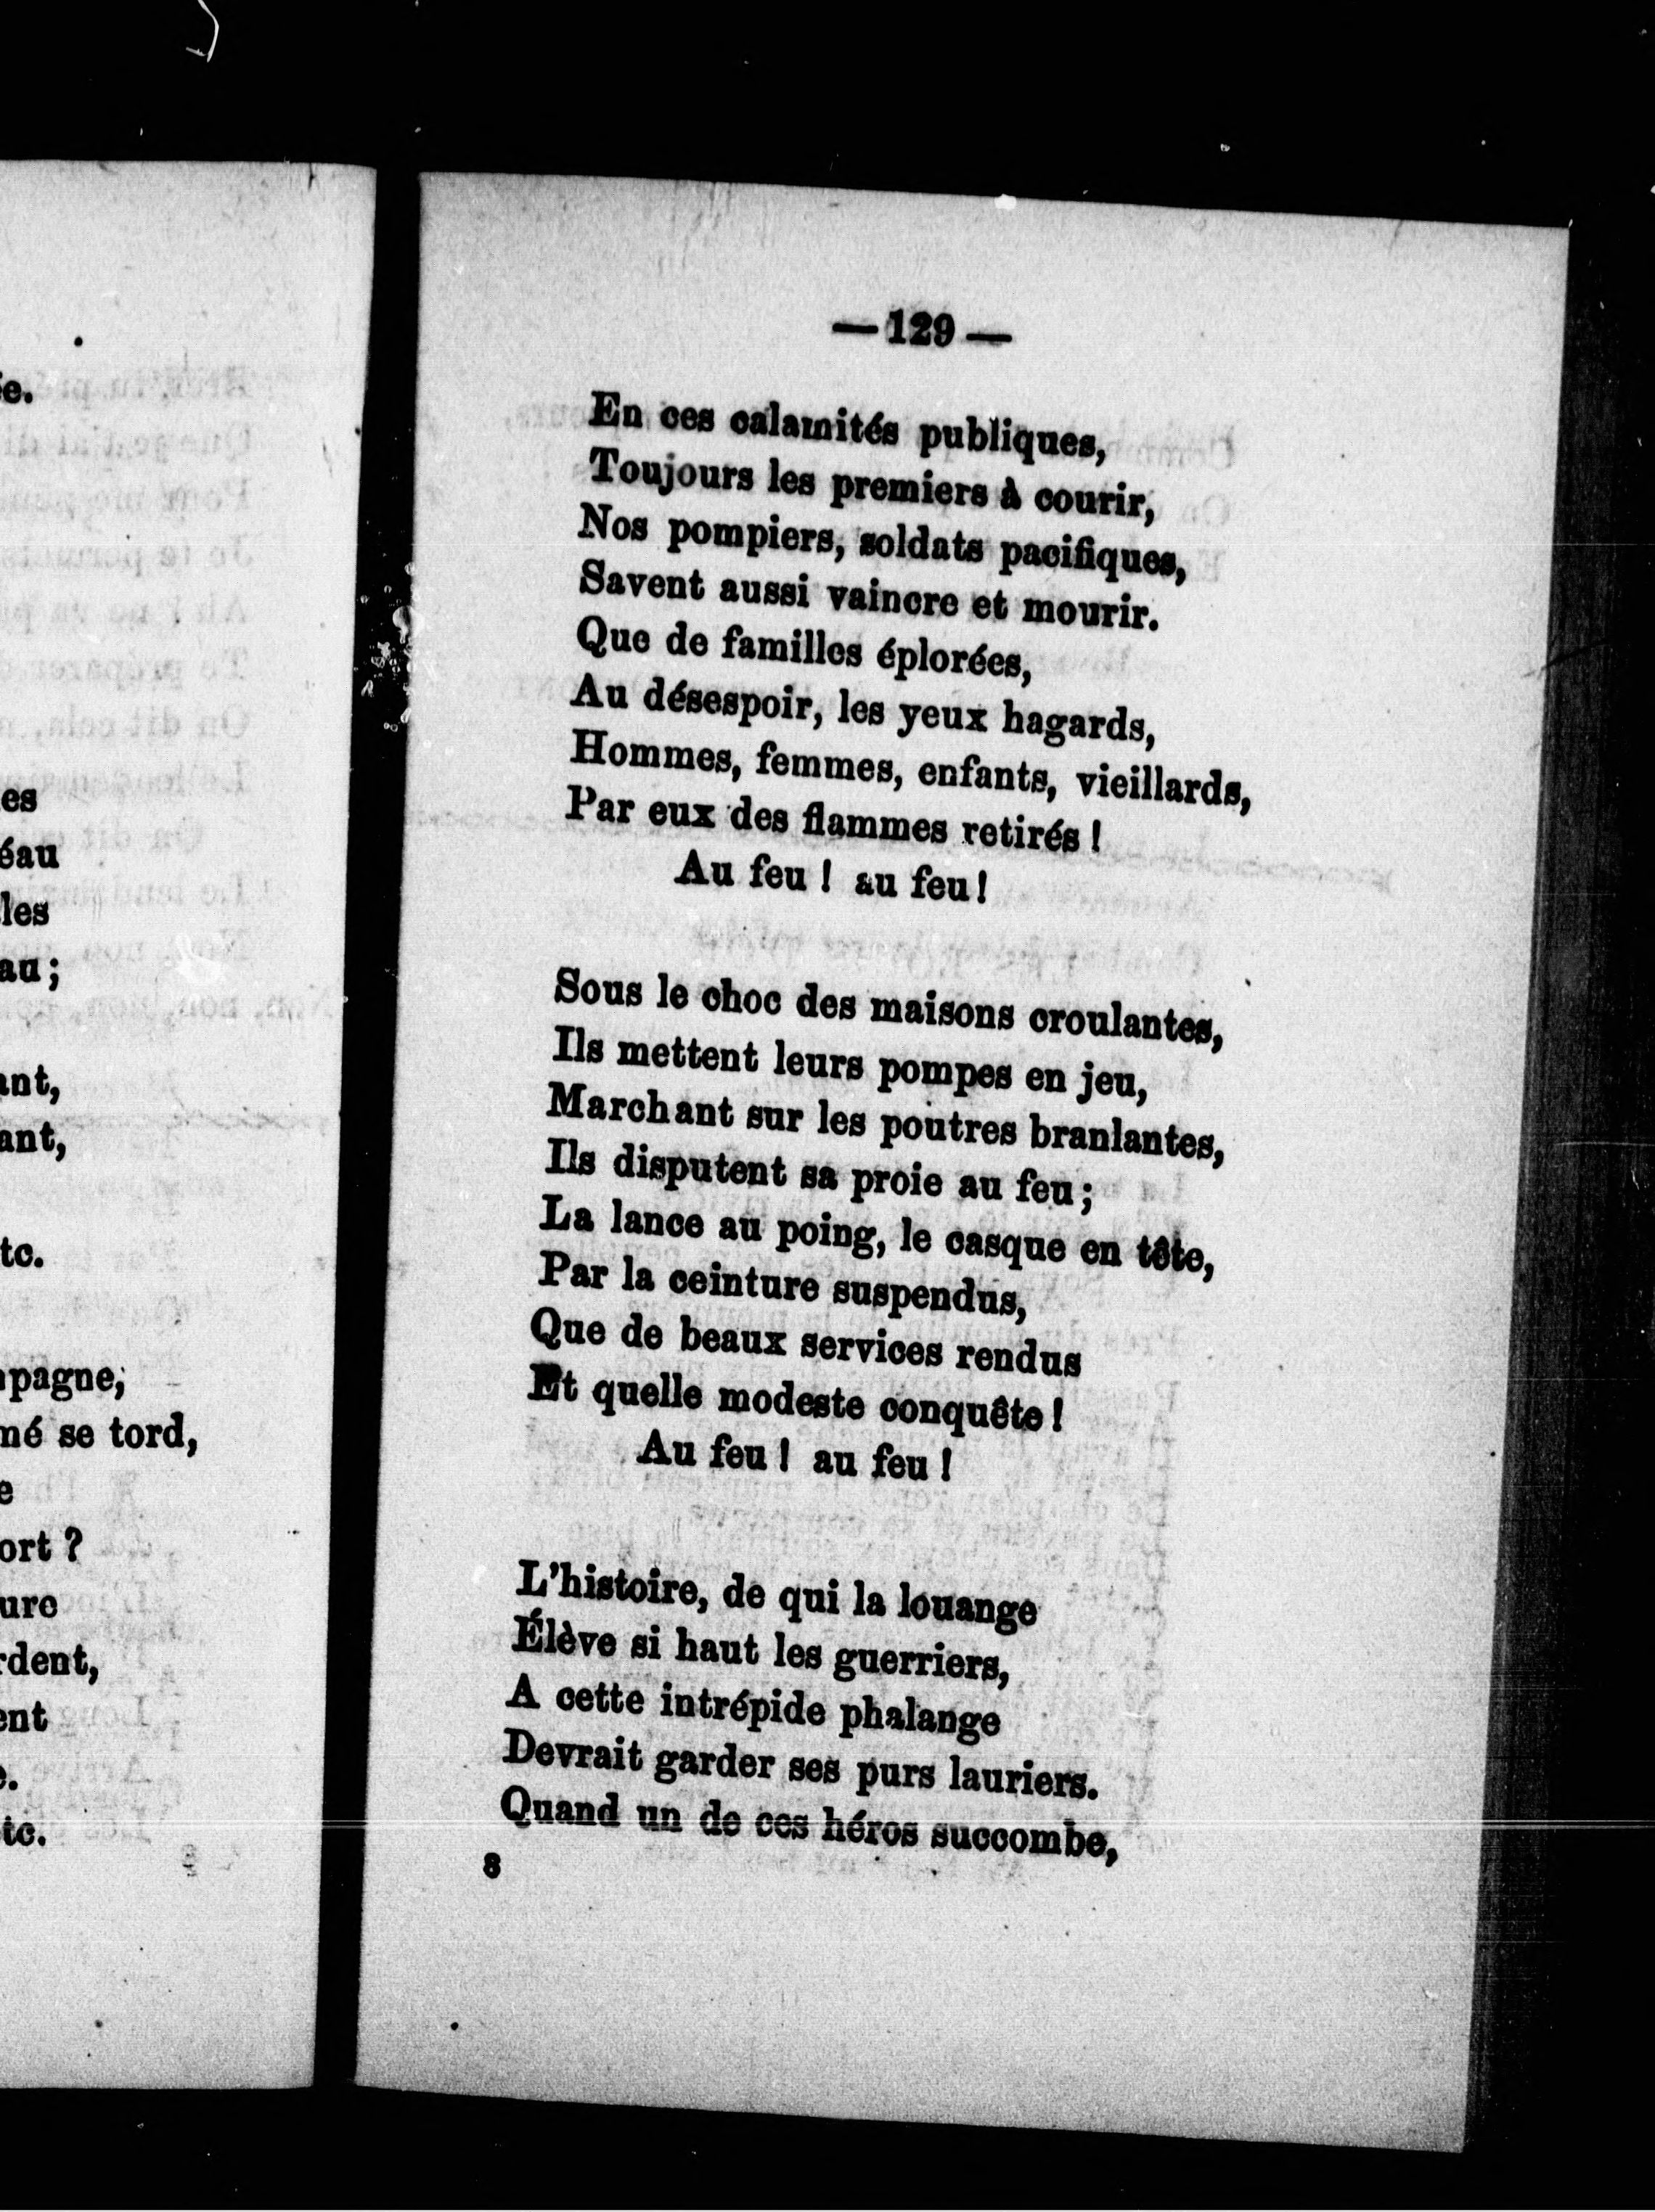 e.
es
éau
les
au;
ant,
ant,
tc.
pagne,
mé se tord,
e
ort ?
ure
rdent,
ent
e.
tc.
— 129 —
En ces calamités publiques,
Toujours les premiers à courir,
Nos pompiers, soldats pacifiques,
Savent aussi vaincre et mourir.
Que de familles éplorées,
Au désespoir, les yeux hagards,
Hommes, femmes, enfants, vieillards,
Par eux des flammes retirés !
Au feu ! au feu !
Sous le choc des maisons croulantes,
Ils mettent leurs pompes en jeu,
Marchant sur les poutres branlantes,
Ils disputent sa proie au feu ;
La lance au poing, le casque en tête,
Par la ceinture suspendus,
Que de beaux services rendus
Et quelle modeste conquête !
Au feu ! au feu !
L'histoire, de qui la louange
Élève si haut les guerriers,
A cette intrépide phalange
Devrait garder ses purs lauriers.
Quand un de ces héros succombe,
8